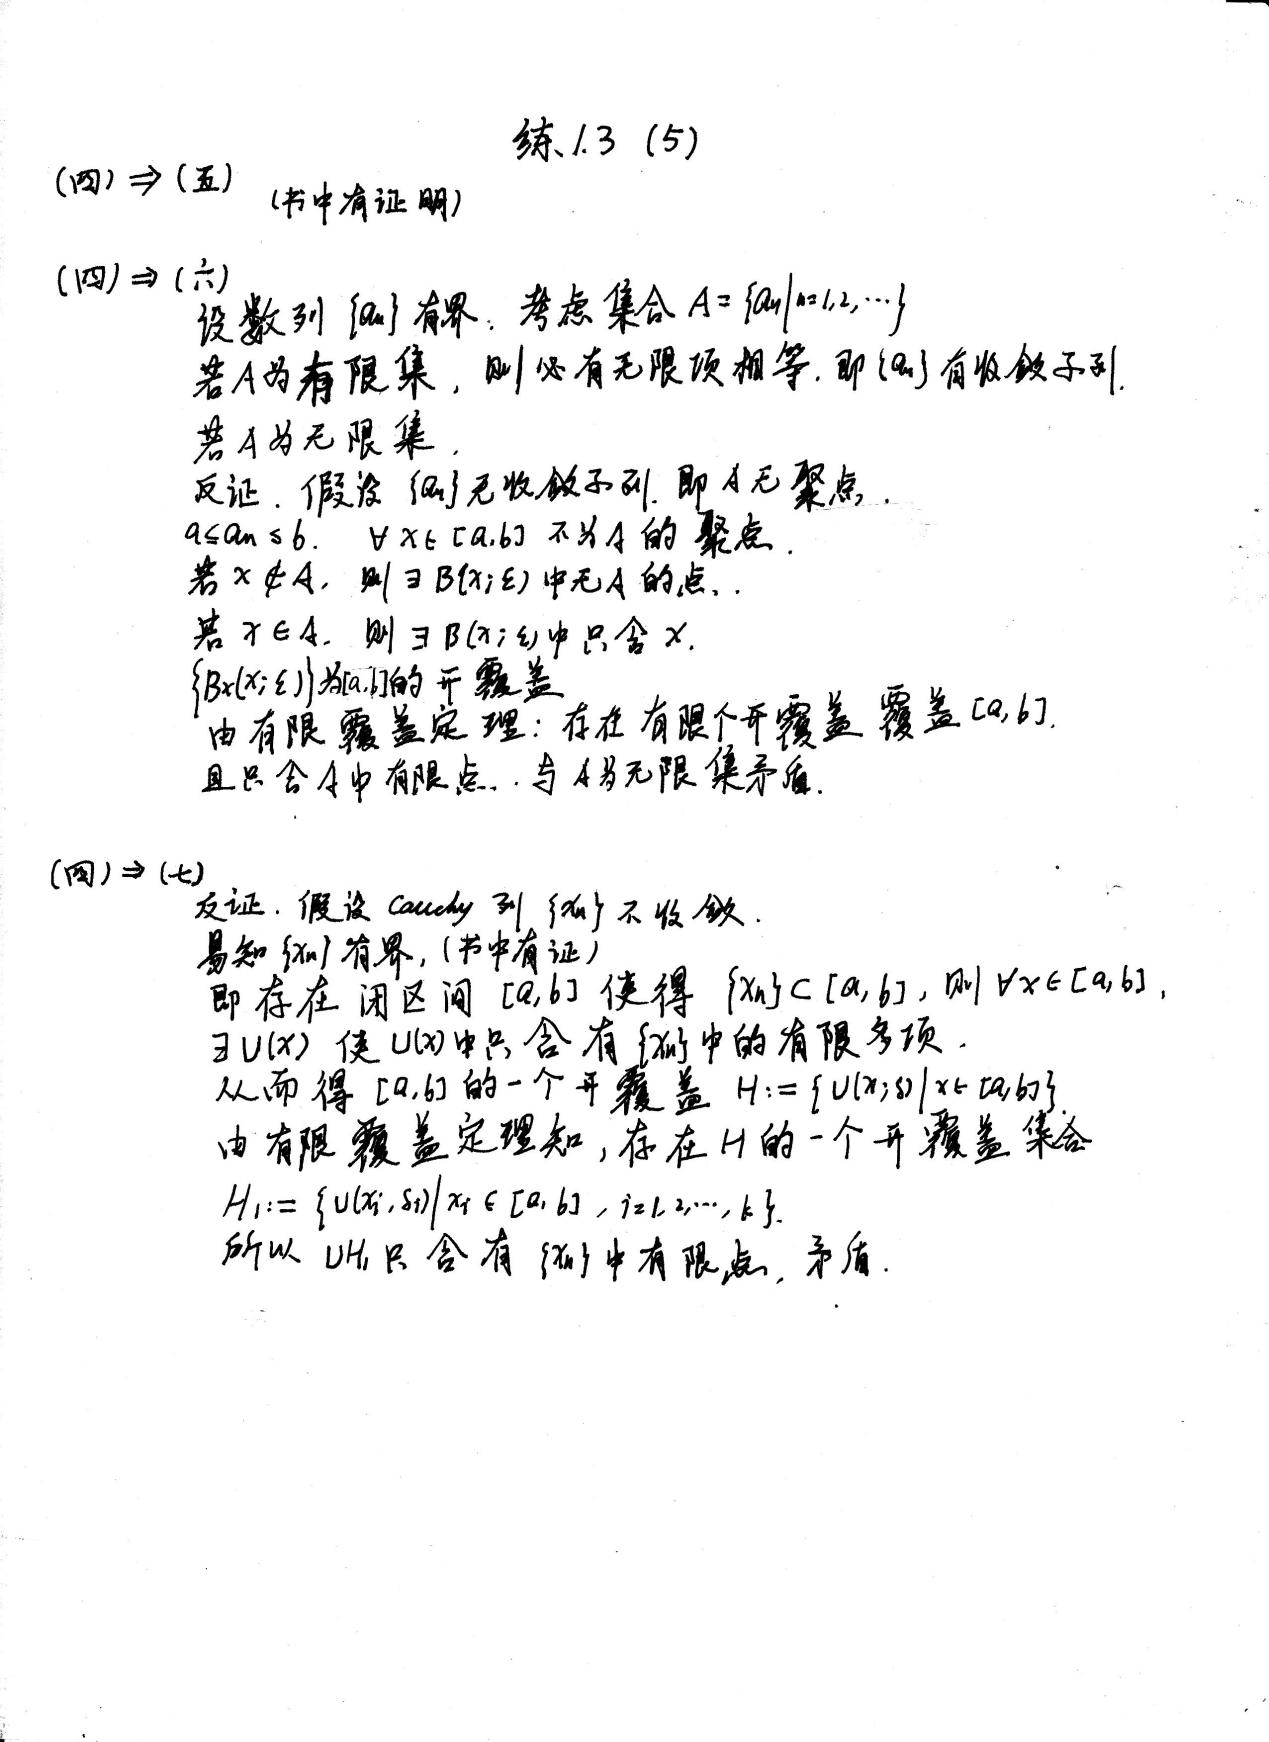 练1.3 (5)
(四)⇒(五)
(书中有证明)
(四)⇒(六)
设数列{an}有界. 考虑集合A={an|n=1,2,…}
若A为有限集, 则必有无限项相等. 即{an}有收敛子列.
若A为无限集.
反证. 假设{an}无收敛子列. 即A无聚点.
a≤an≤b. ∀x∈[a,b]不为A的聚点.
若x∉A. 则∃B(x;ε)中无A的点.
若x∈A. 则∃B(x;ε)中只含x.
{Bx(x;ε)}为[a,b]的开覆盖
由有限覆盖定理: 存在有限个开覆盖覆盖[a,b].
且只含A中有限点. 与A为无限集矛盾.
(四)⇒(七)
反证. 假设Cauchy列{xn}不收敛.
易知{xn}有界, (书中有证)
即存在闭区间[a,b]使得{xn}⊂[a,b], 则∀x∈[a,b],
∃U(x)使U(x)中只含有{xn}中的有限多项.
从而得[a,b]的一个开覆盖H:={U(x;δ)|x∈[a,b]}.
由有限覆盖定理知, 存在H的一个开覆盖集合
H₁:={U(xi,δi)|xi∈[a,b], i=1,2,…,k}.
所以∪H₁只含有{xn}中有限点, 矛盾.